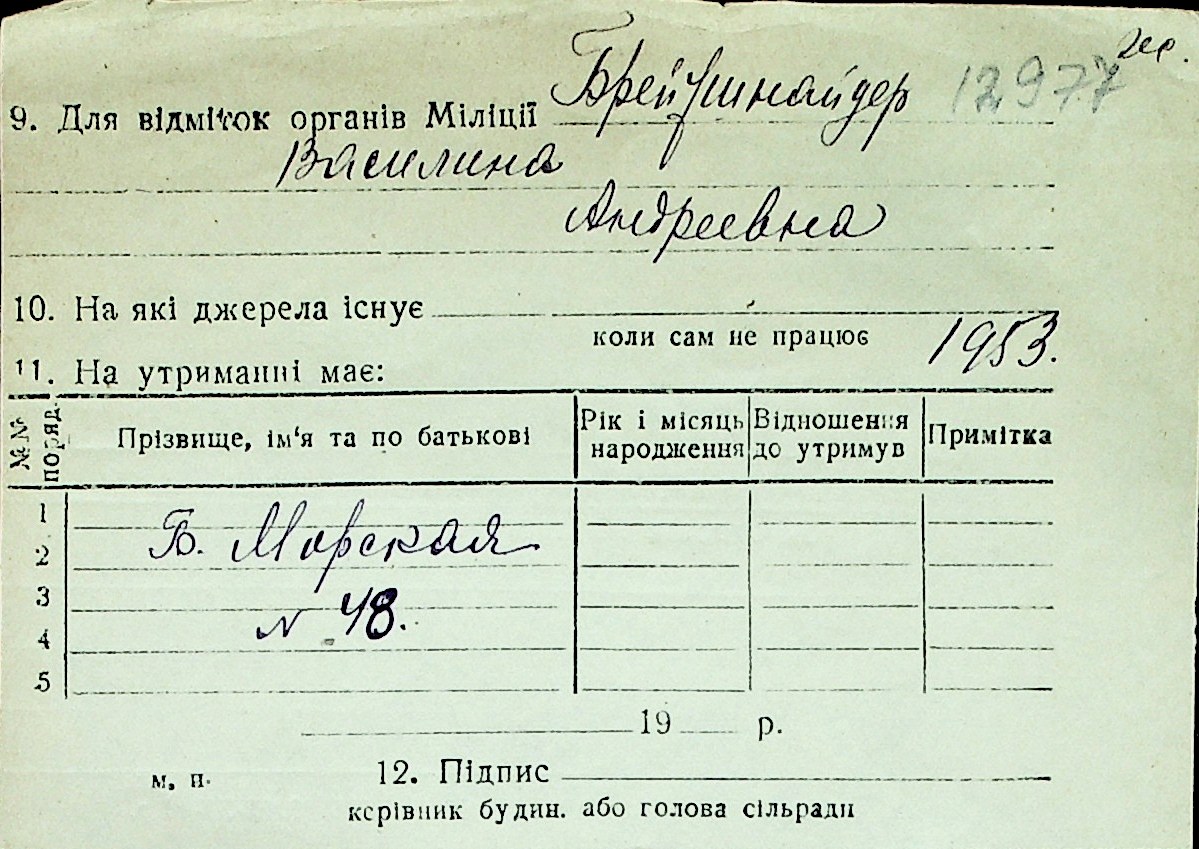 9. Для відміток органів Міліції Брейтшнайдер 12977
Василина
Андреевна
10. На які джерела існує
коли сам не працює 1953.
11. На утриманні має:
№№ поряд. Прізвище, ім'я та по батькові Рік і місяць народження Відношення до утримув Примітка
1
2 Б. Морская
3
4 N 48.
5
19 р.
м. п. 12. Підпис
керівник будин. або голова сільради